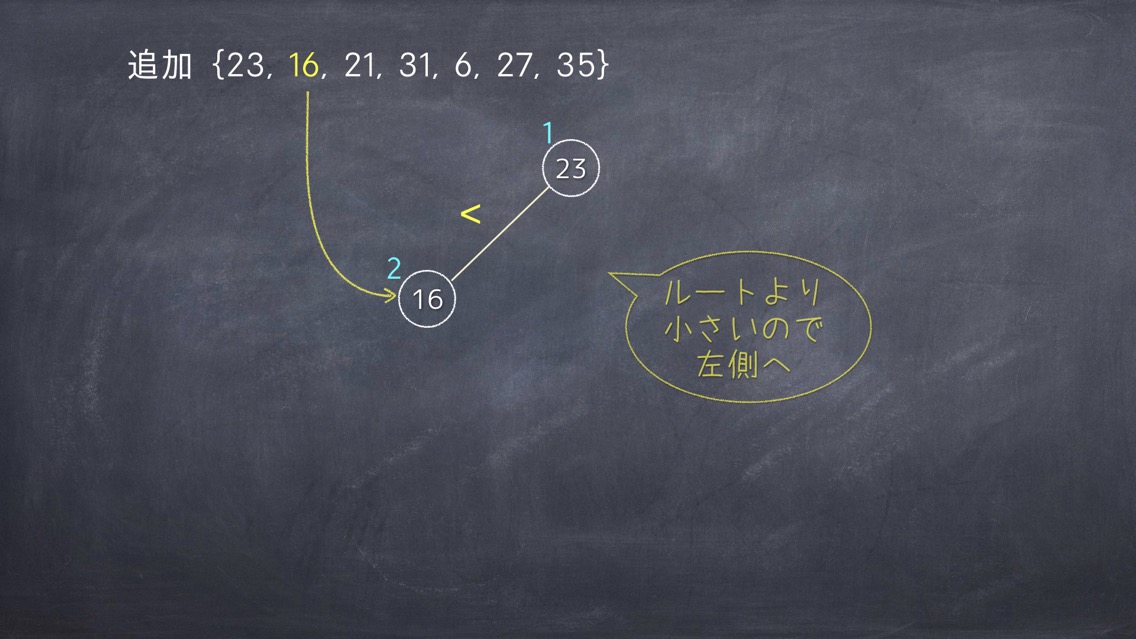 追加 {23, 16, 21, 31, 6, 27, 35}
1
23
<
2
16
ルートより
小さいので
左側へ